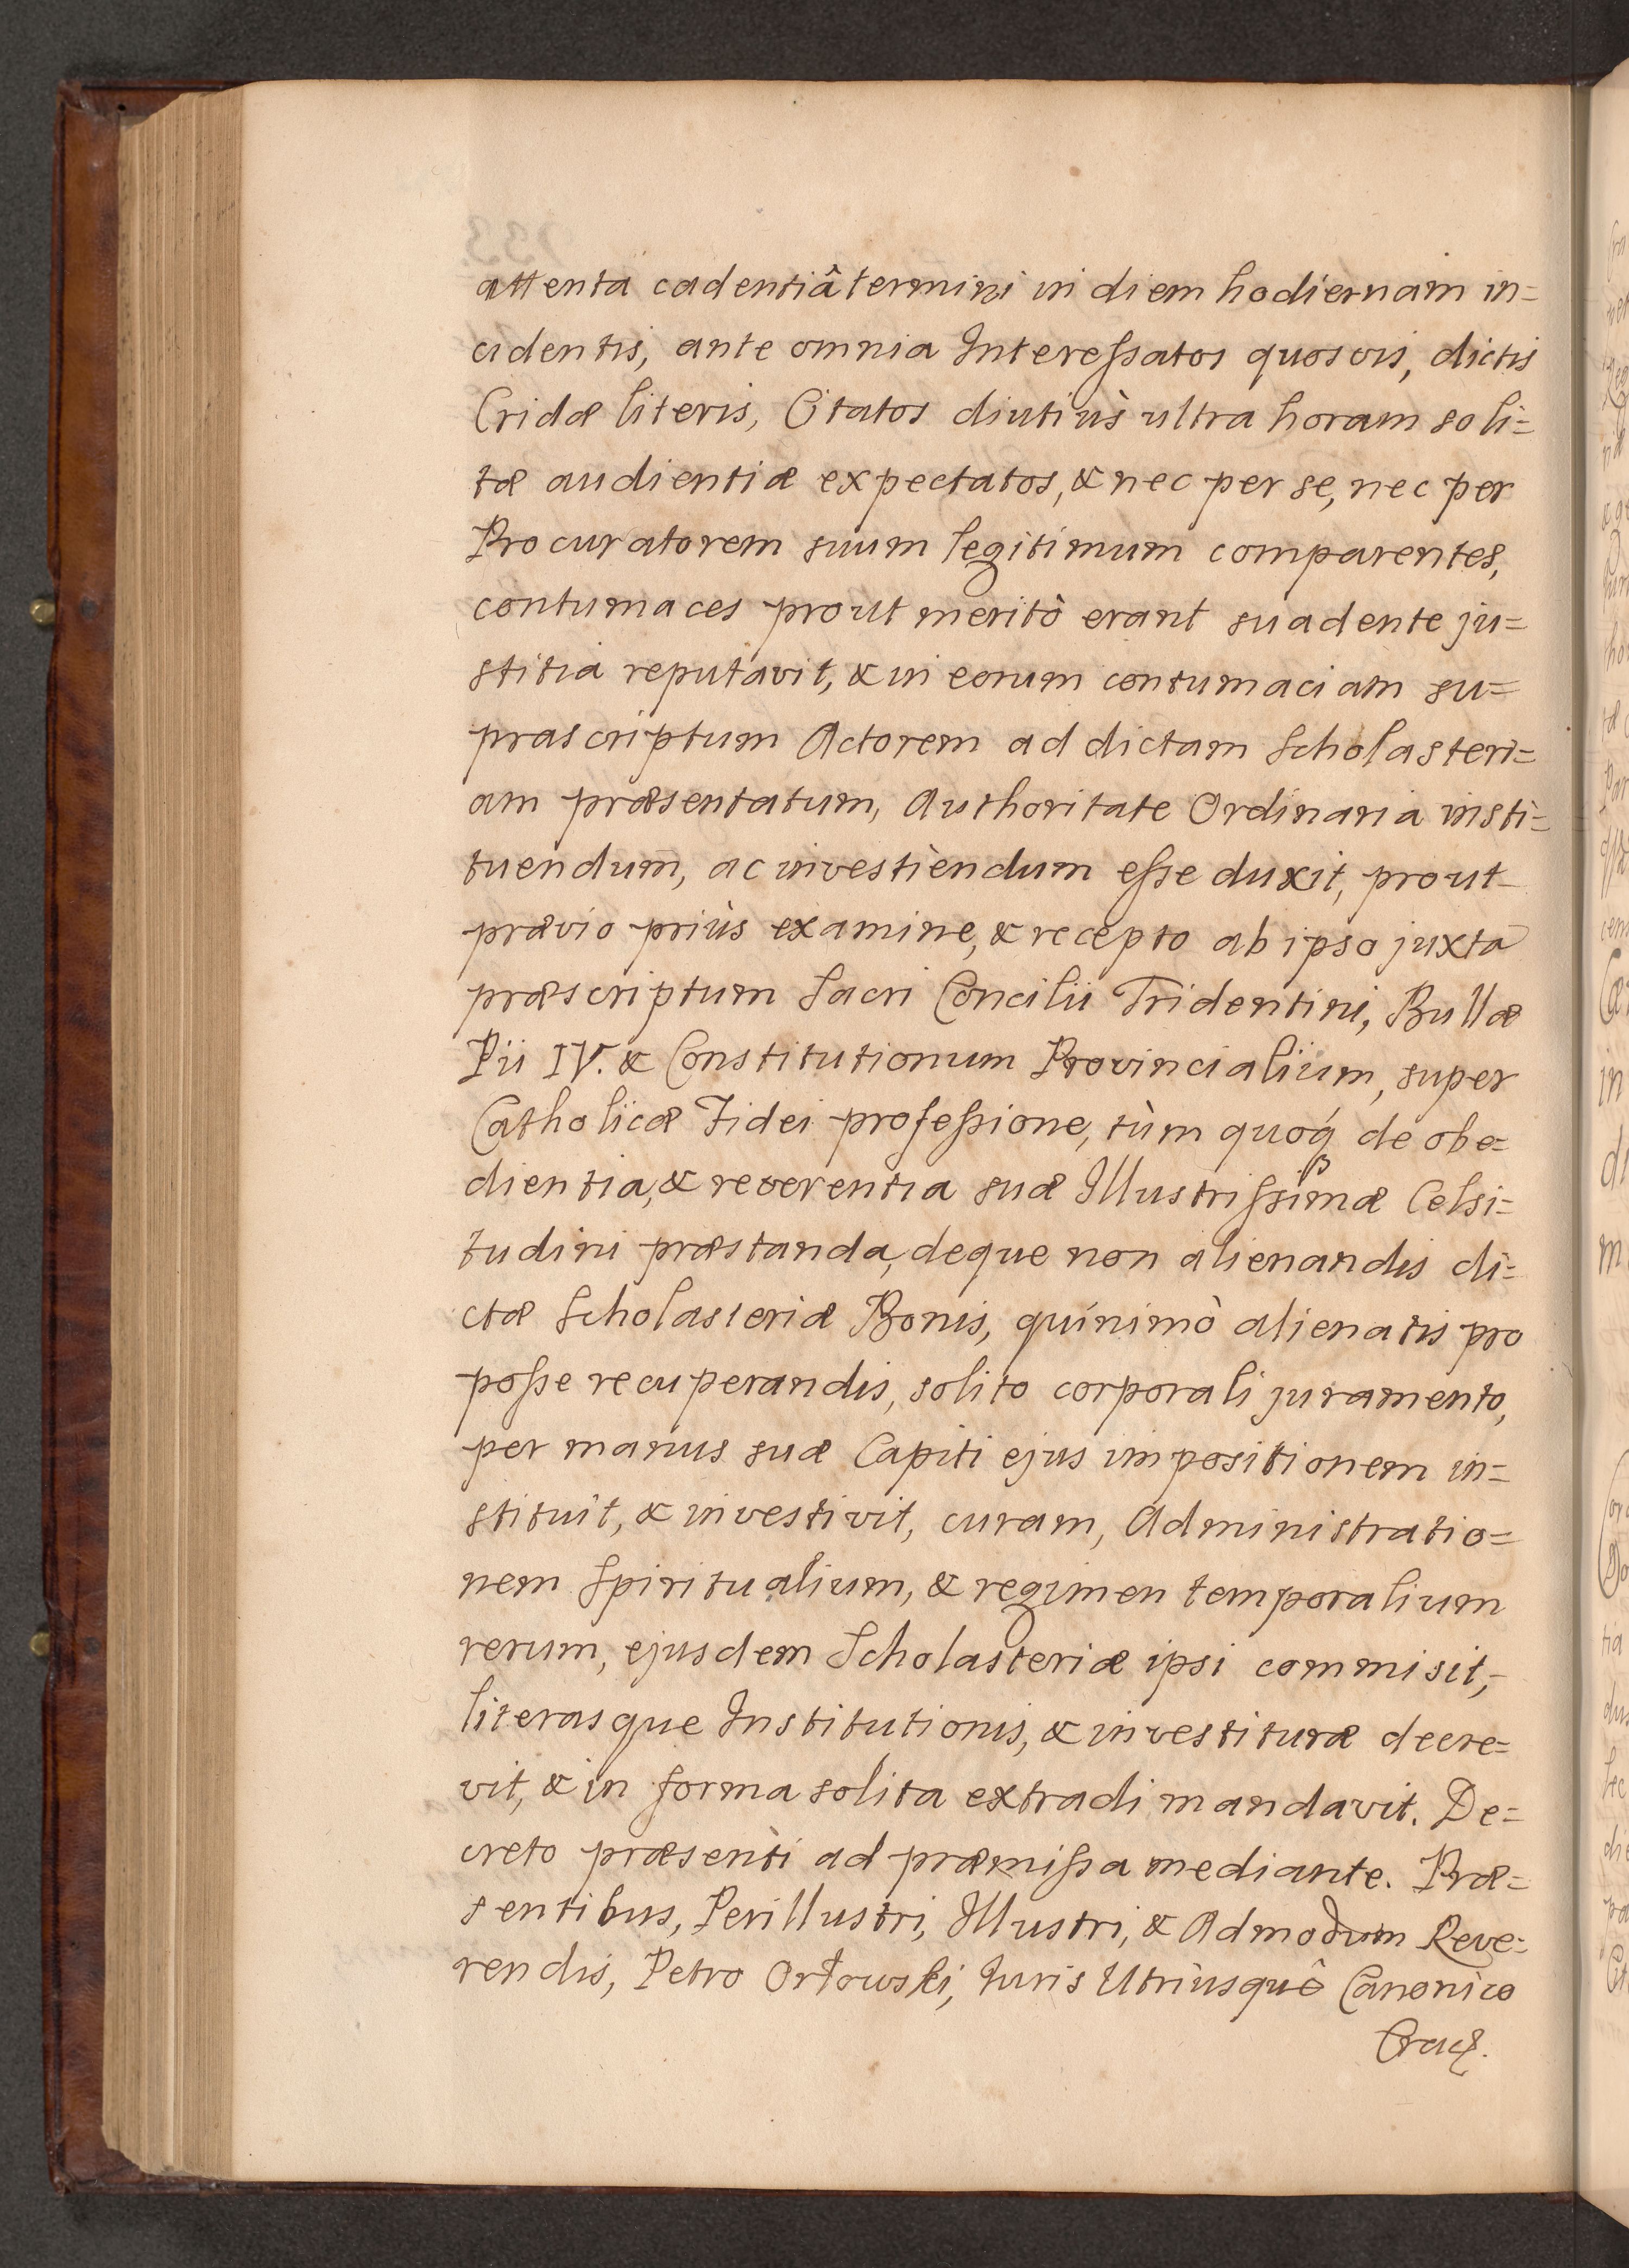 attenta cadentiâ termini in diem hodiernam in=
cidentis, ante omnia Interessatos quosvis, dictis
Cridæ literis, Citatos diutiùs ultra horam soli=
tæ audientiæ expectatos, & nec per se, nec per
Procuratorem suum legitimum comparentes,
contumaces prout meritò erant suadente ju=
stitia reputavit, & in eorum contumaciam su=
prascriptum Actorem ad dictam Scholasteri=
am præsentatum, Authoritate Ordinaria insti=
tuendum, ac investiendum esse duxit, prout
prævio priùs examine, & recepto ab ipso juxta
præscriptum Sacri Concilii Tridentini, Bullæ
Pii IV. & Constitutionum Provincialium, super
Catholicæ Fidei professione, tùm quoq́ de obe=
dientia, & reverentia suæ Illustrissimæ Celsi=
tudini præstanda, deque non alienandis di=
ctæ Scholasteriæ Bonis, quinimò alienatis pro
posse recuperandis, solito corporali juramento,
per manus suæ Capiti ejus impositionem in=
stituit, & investivit, curam, Administratio=
nem Spiritualium, & regimen temporalium
rerum, ejusdem Scholasteriæ ipsi commisit,
literasque Institutionis, & investituræ decre=
vit, & in forma solita extradi mandavit. De=
creto præsenti ad præmissa mediante. Præ=
sentibus, Perillustri, Illustri, & Admodum Reve=
rendis, Petro Orłowski, Juris Utriusquè Canonico